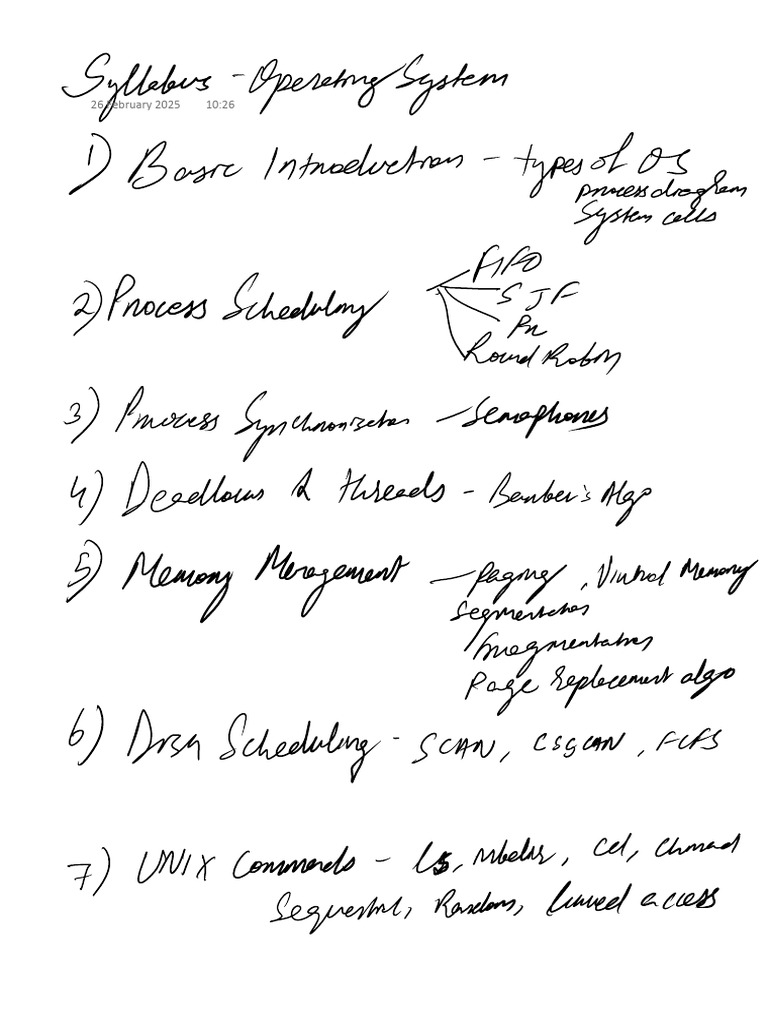 Syllabus - Operating System
26 February 2025 10:26
1) Basic Introduction - types of OS
process diagram
System calls
2) Process Scheduling
FIFO
SJF
Pr
Round Robin
3) Process Synchronisation - Semaphores
4) Deadlocks & threads - Banker's Algo
5) Memory Management - Paging, Virtual Memory
Segmentation
Fragmentation
Page Replacement algo
6) Disk Scheduling - SCAN, CSSCAN, FCFS
7) UNIX Commands - ls, mkdir, cd, chmod
Sequential, Random, linked access